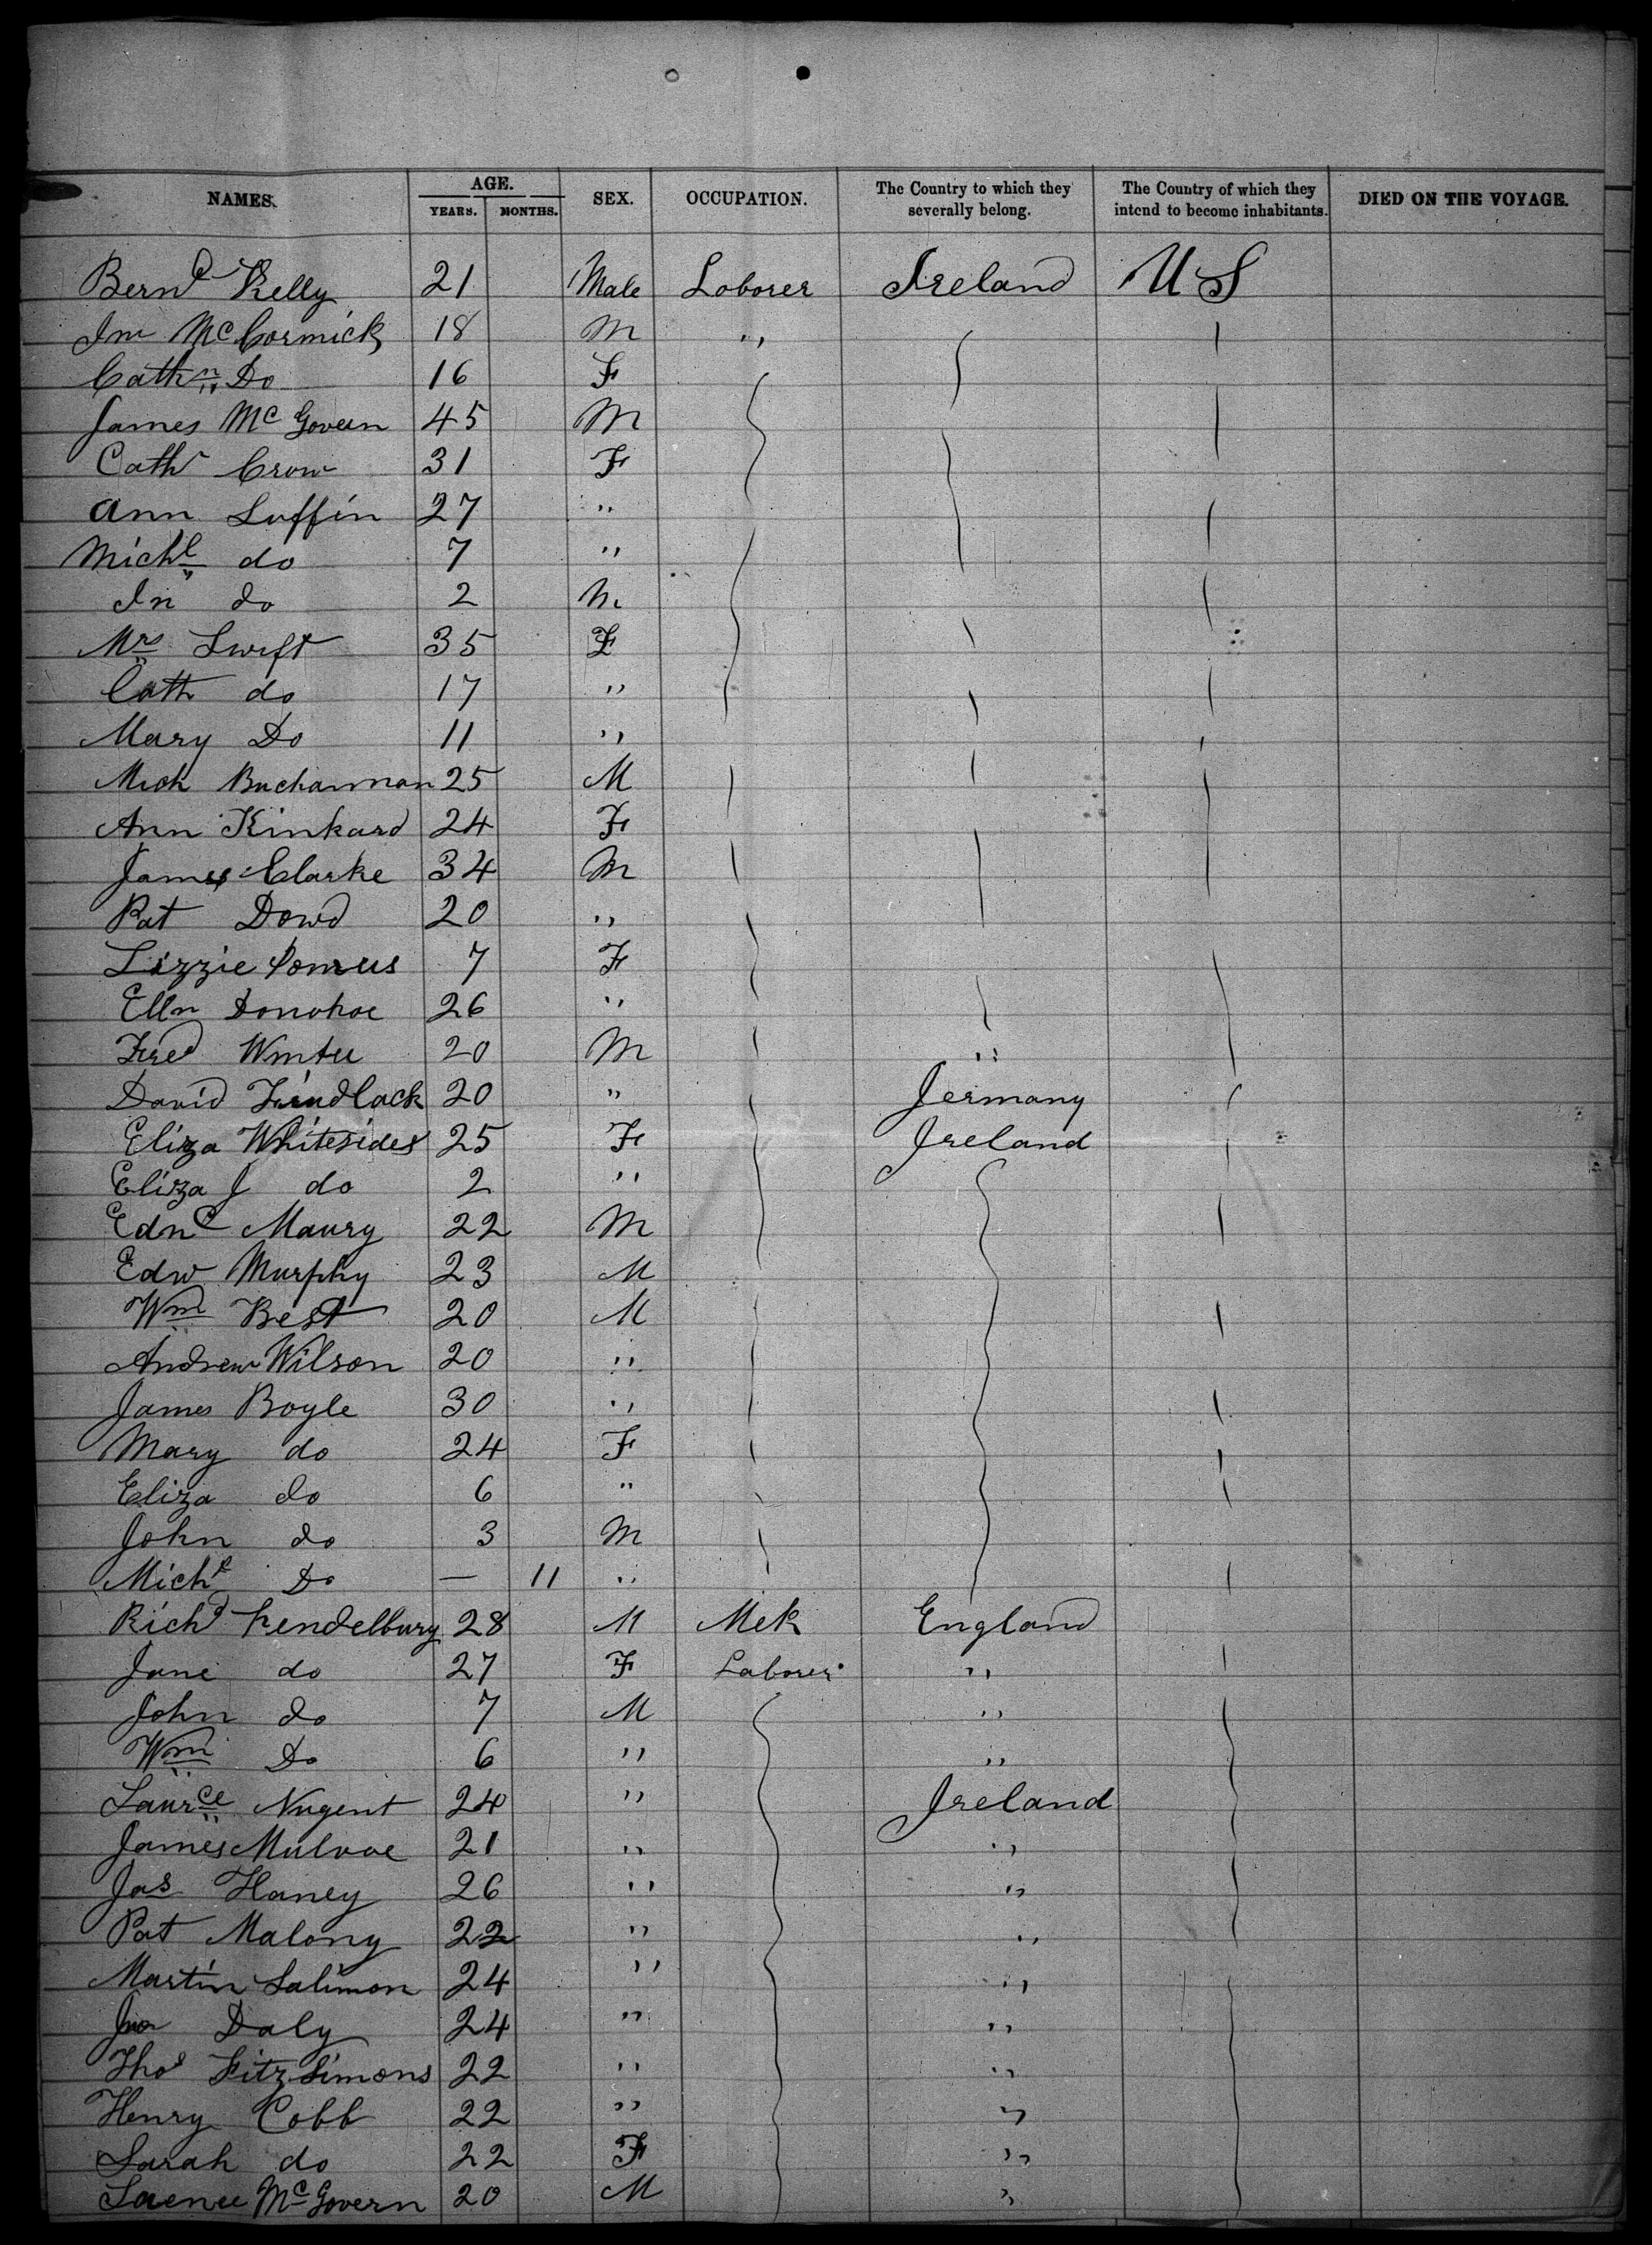 NAMES. AGE. SEX. OCCUPATION. The Country to which they severally belong. The Country of which they intend to become inhabitants. DIED ON THE VOYAGE.
YEARS. MONTHS.
Bernd Kelly 21 Male Laborer Ireland U S
Jno McCormick 18 M "
Cathn Do 16 F
James McGovern 45 M
Cath Crow 31 F
Ann Luffin 27 "
Michl do 7 "
Jn do 2 M
Mrs Swift 35 F
Cath do 17 "
Mary Do 11 "
Mich Buchannan 25 M
Ann Kinkard 24 F
James Clarke 34 M
Pat Dowd 20 "
Lizzie 7 F
Elln Donohoe 26 "
Fred Winter 20 M "
David 20 " Jermany
Eliza Whitesides 25 F Ireland
Eliza J do 2 "
Ednd Maury 22 M
Edw Murphy 23 M
Wm Best 20 M
Andrew Wilson 20 "
James Boyle 30 "
Mary do 24 F
Eliza do 6 "
John do 3 M
Michl Do — 11 "
Richd Hendelbury 28 M Mek England
Jane do 27 F Laborer "
John do 7 M "
Wm Do 6 " "
Laurce Nugent 24 " Ireland
James Mulvoe 21 " "
Jas Haney 26 " "
Pat Malony 22 " "
Martin Salimon 24 " "
Jno Daly 24 " "
Thos Fitzsimons 22 " "
Henry Cobb 22 " "
Sarah do 22 F "
McGovern 20 M "